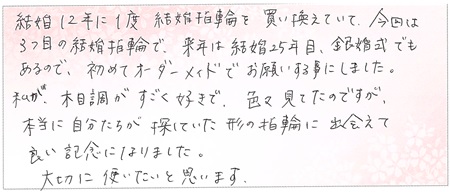 結婚12年に1度 結婚指輪を買い換えていて、今回は
3つ目の結婚指輪で、来年は結婚25年目、銀婚式でも
あるので、初めてオーダーメイドでお願いする事にしました。
私が、木目調がすごく好きで、色々見てたのですが、
本当に自分たちが探していた形の指輪に出会えて
良い記念になりました。
大切に使いたいと思います。